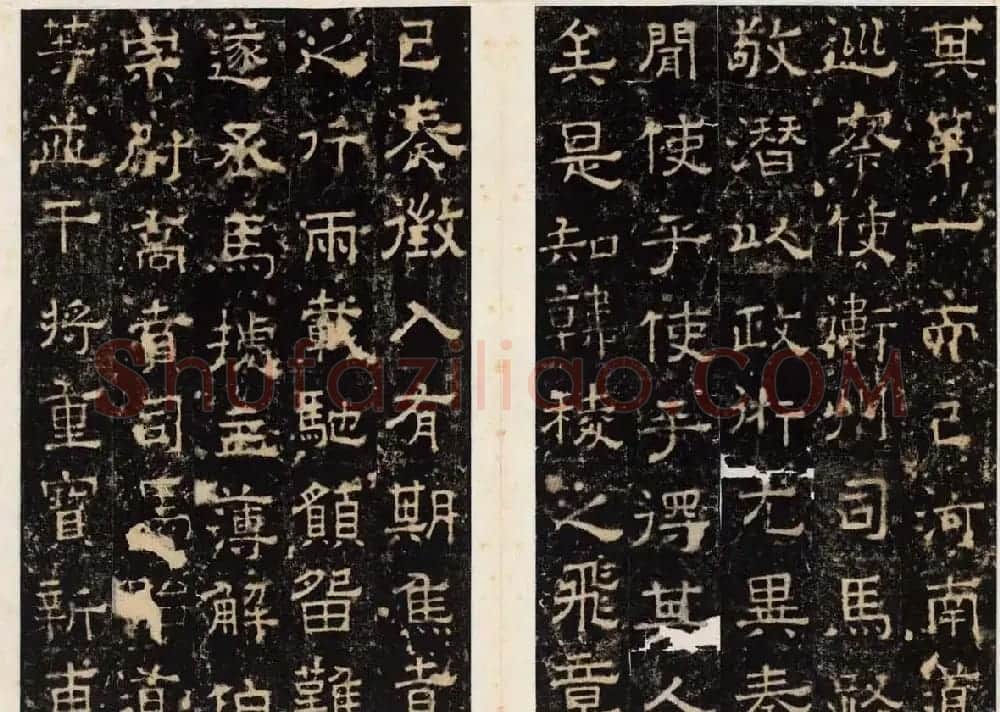 其第一而已河南道
巡察使衛州司馬路
敬潜以政術尤異奏
聞使乎使乎得其人
矣是知韓稜之飛章
已奏徵入有期焦
之行雨載馳願留難
遂丞馬據孟簿解
崇尉
等並干將重寶新甫
Shufaziliao.COM